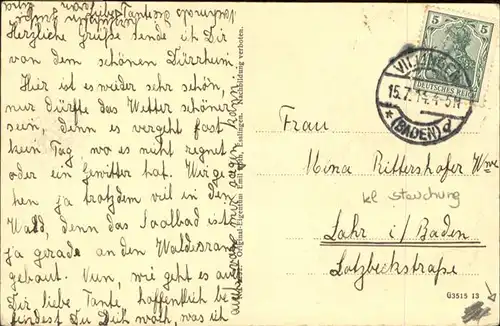 Herzliche Grüße sende ich Dir
von dem schönen Dürrheim.
Hier ist es wieder sehr schön,
nur dürfte das Wetter schöner
sein, denn es vergeht fast
kein Tag wo es nicht regnet
oder ein Gewitter hat. Wir ge-
hen ja trotzdem viel in den
Wald, denn das Soolbad ist
ja gerade an den Waldesrand
gebaut. Nun, wie geht es auch
Dir liebe Tante, hoffentlich be-
findest Du Dich wohl, was ich
auch von mir sagen kann.
Original-Eigentum Emil Esslingen. Nachbildung verboten.
5 5
DEUTSCHES REICH
VILLINGEN
15.7.14. 4-5N
* (BADEN) d
Frau
Mina Rittershofer Wwe
kl stauchung
Lahr i/Baden
Lotzbeckstraße
G3515 13